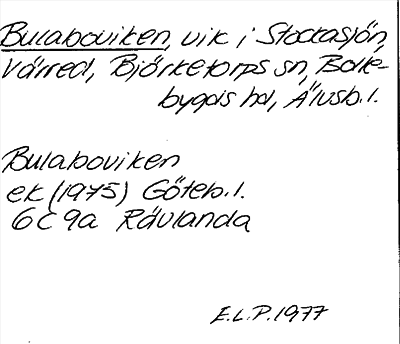 Bulaboviken, vik i Stockasjön,
Värred, Björketorps sn, Bolle-
bygds hd, Älvsb.l.
Bulaboviken
ek (1975) Göteb.l.
6C9a Rävlanda
E.L.P.1977